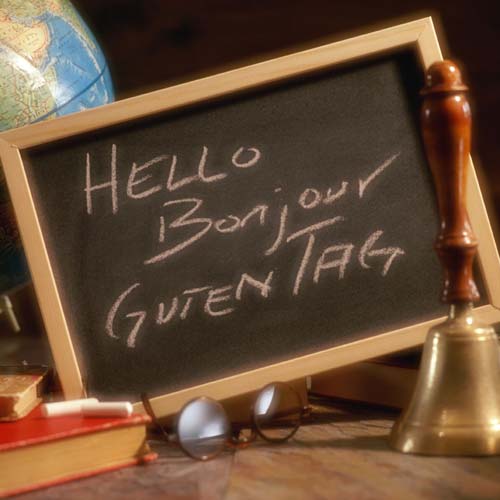 HELLO
Bonjour
GUTEN TAG